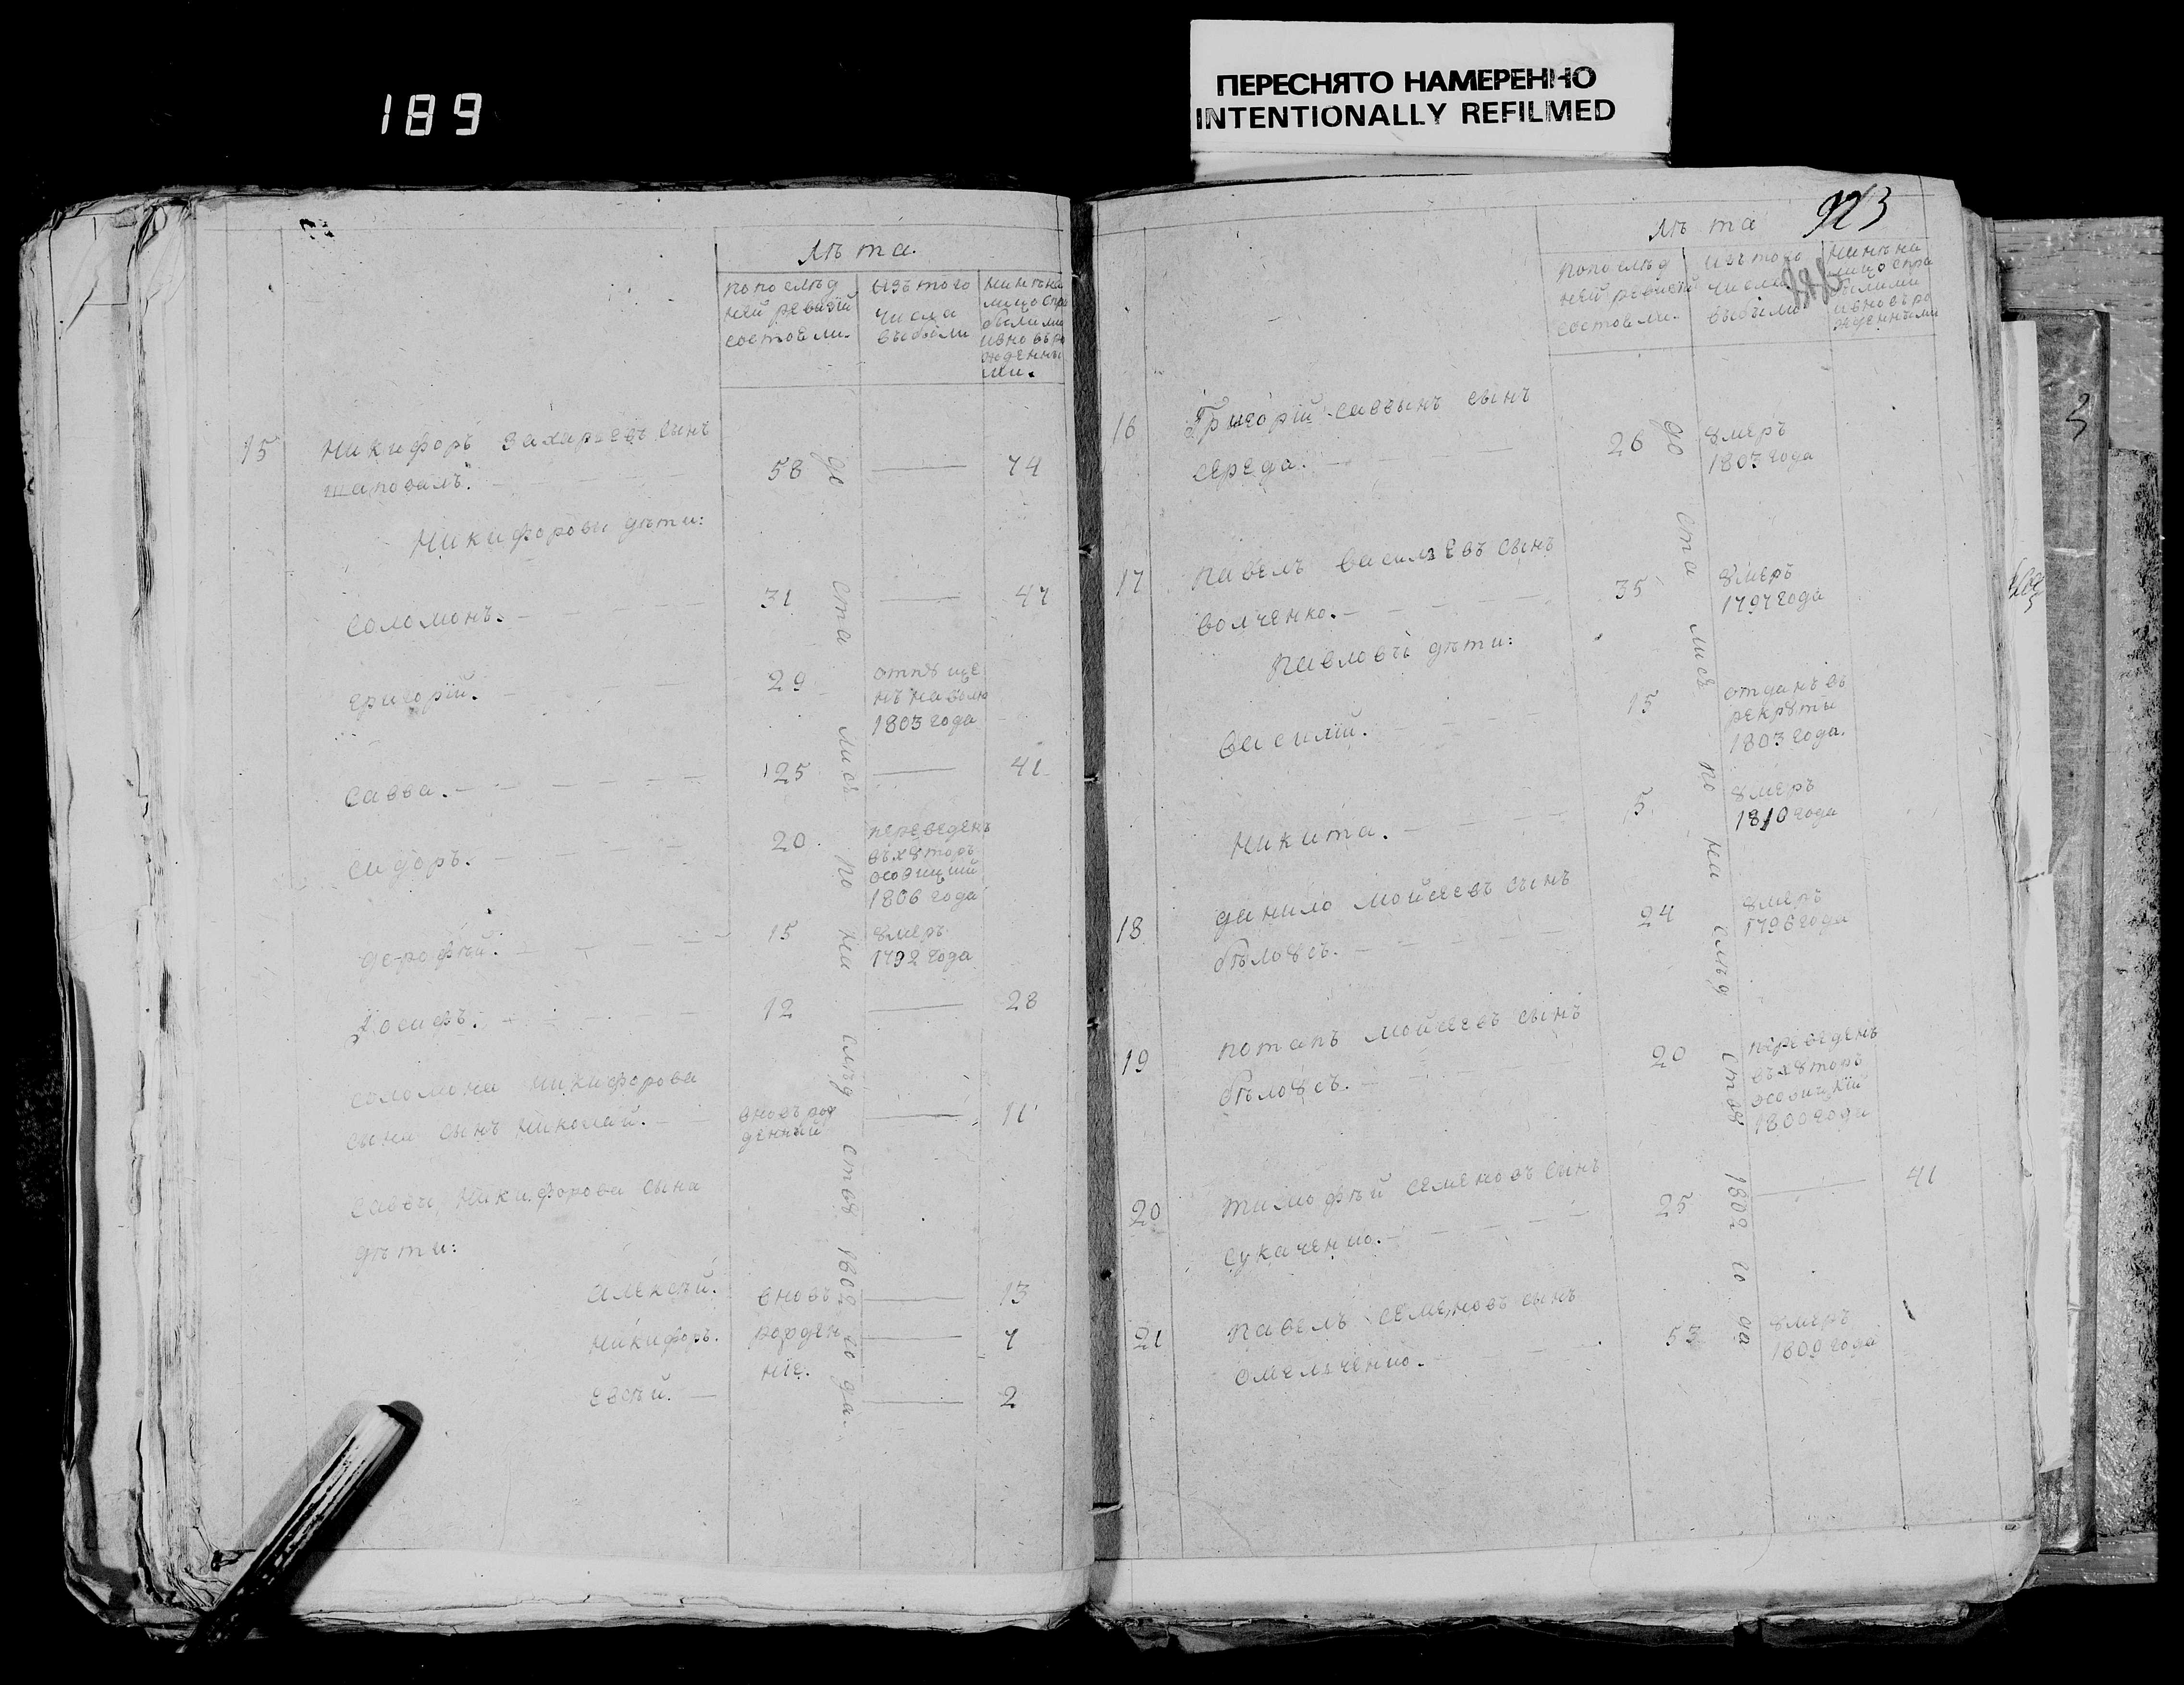 189
ПЕРЕСНЯТО НАМЕРЕННО
INTENTIONALLY REFILMED
лѣта.
попослѣд
ней ревизїи
состояли.
изъ того
числа
выбыли
нинѣ на
лицо спри
былими
ивновъро
жденны
ми.
15
Никифоръ Захарьевъ сынъ
шаповалъ. 58 — 74
Никифоровы дѣти:
Соломонъ. 31 — 47
Григорїй. 29
отпꙋще
нъ на волю
1803 года
Савва. 25 — 41
Сидоръ. 20
переведенъ
въ хꙋторъ
1806 года
дорофѣй. 15
ꙋмеръ
1792 года
Іосифъ. 12 — 28
Соломона Никифорова
сына сынъ Николай. вновь рож
денный — 11
Саввы Никифорова сына
дѣти:
Алексѣй. вновь — 13
Никифоръ. рожден — 7
нїе.
Евсѣй. — 2
до ста лисъ по на слѣд ствꙋ 1802 го да.
923
лѣта
попослѣд
ней ревизїи
состояли.
изъ того
числа
выбыли
нинѣ на
лицо спри
былими
ивновъ ро
жденными
16
Григорїй саввынъ сынъ
середа. 26
ꙋмеръ
1803 года
17
Павелъ васильевъ сынъ
волченко. 35
ꙋмеръ
1797 года
Павловы дѣти:
Василїй. 15
отданъ въ
рекрꙋты
1803 года.
Никита. 5
ꙋмеръ
1810 года
18
Данило Мойсеевъ сынъ
бѣлоꙋсъ. 24
ꙋмеръ
1796 года
19
Потапъ Мойсеевъ сынъ
бѣлоꙋсъ. 20
переведенъ
въ хꙋторъ
1800 года
20
Тимофѣй Семеновъ сынъ
сукаченко. 25 — 41
21
Павелъ Семеновъ сынъ
омельченко. 53
ꙋмеръ
1809 года
до ста лисъ по на слѣд ствꙋ 1802 го да
3